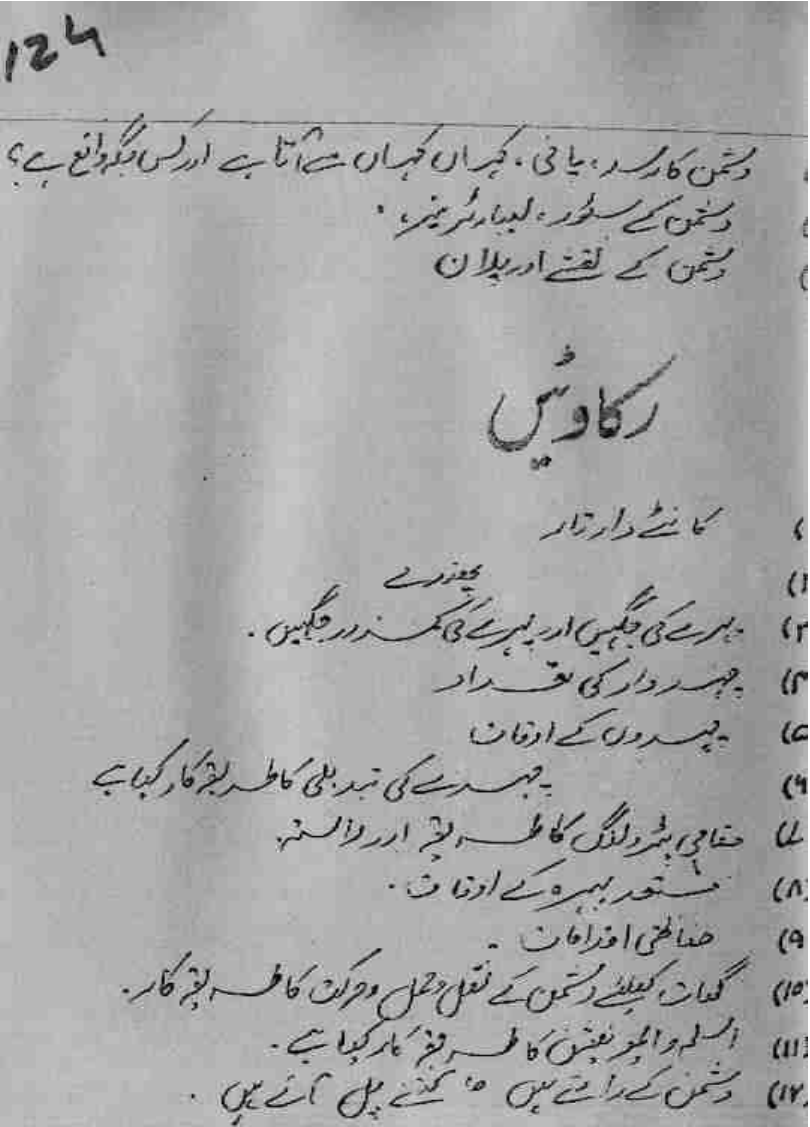 124
دشمن کا رسد، پانی، کہاں کہاں سے آتا ہے اور کس جگہ واقع ہے؟
دشمن کے سٹور، لیبارٹریز،
دشمن کے نقشے اور پلان
رکاوٹیں
کانٹے دار تار
۲)
۳) پہرے کی جگہیں اور پہرے کی کمزور جگہیں.
۴) پہرہ دار کی تعداد
۵) پہروں کے اوقات
۶) پہرے کی تبدیلی کا طریقہ کار کیا ہے
۷) مقامی پٹرولنگ کا طریقہ اور راستہ.
۸) پہرہ کے اوقات.
۹) حفاظتی اقدامات.
(۱۰) گھات کیلئے دشمن کے نقل وحمل وحرکت کا طریقہ کار.
(۱۱) اسلحہ و ایمونیشن کا طریقہ کار کیا ہے.
(۱۲) دشمن کے راستے میں کتنے پل آتے ہیں.